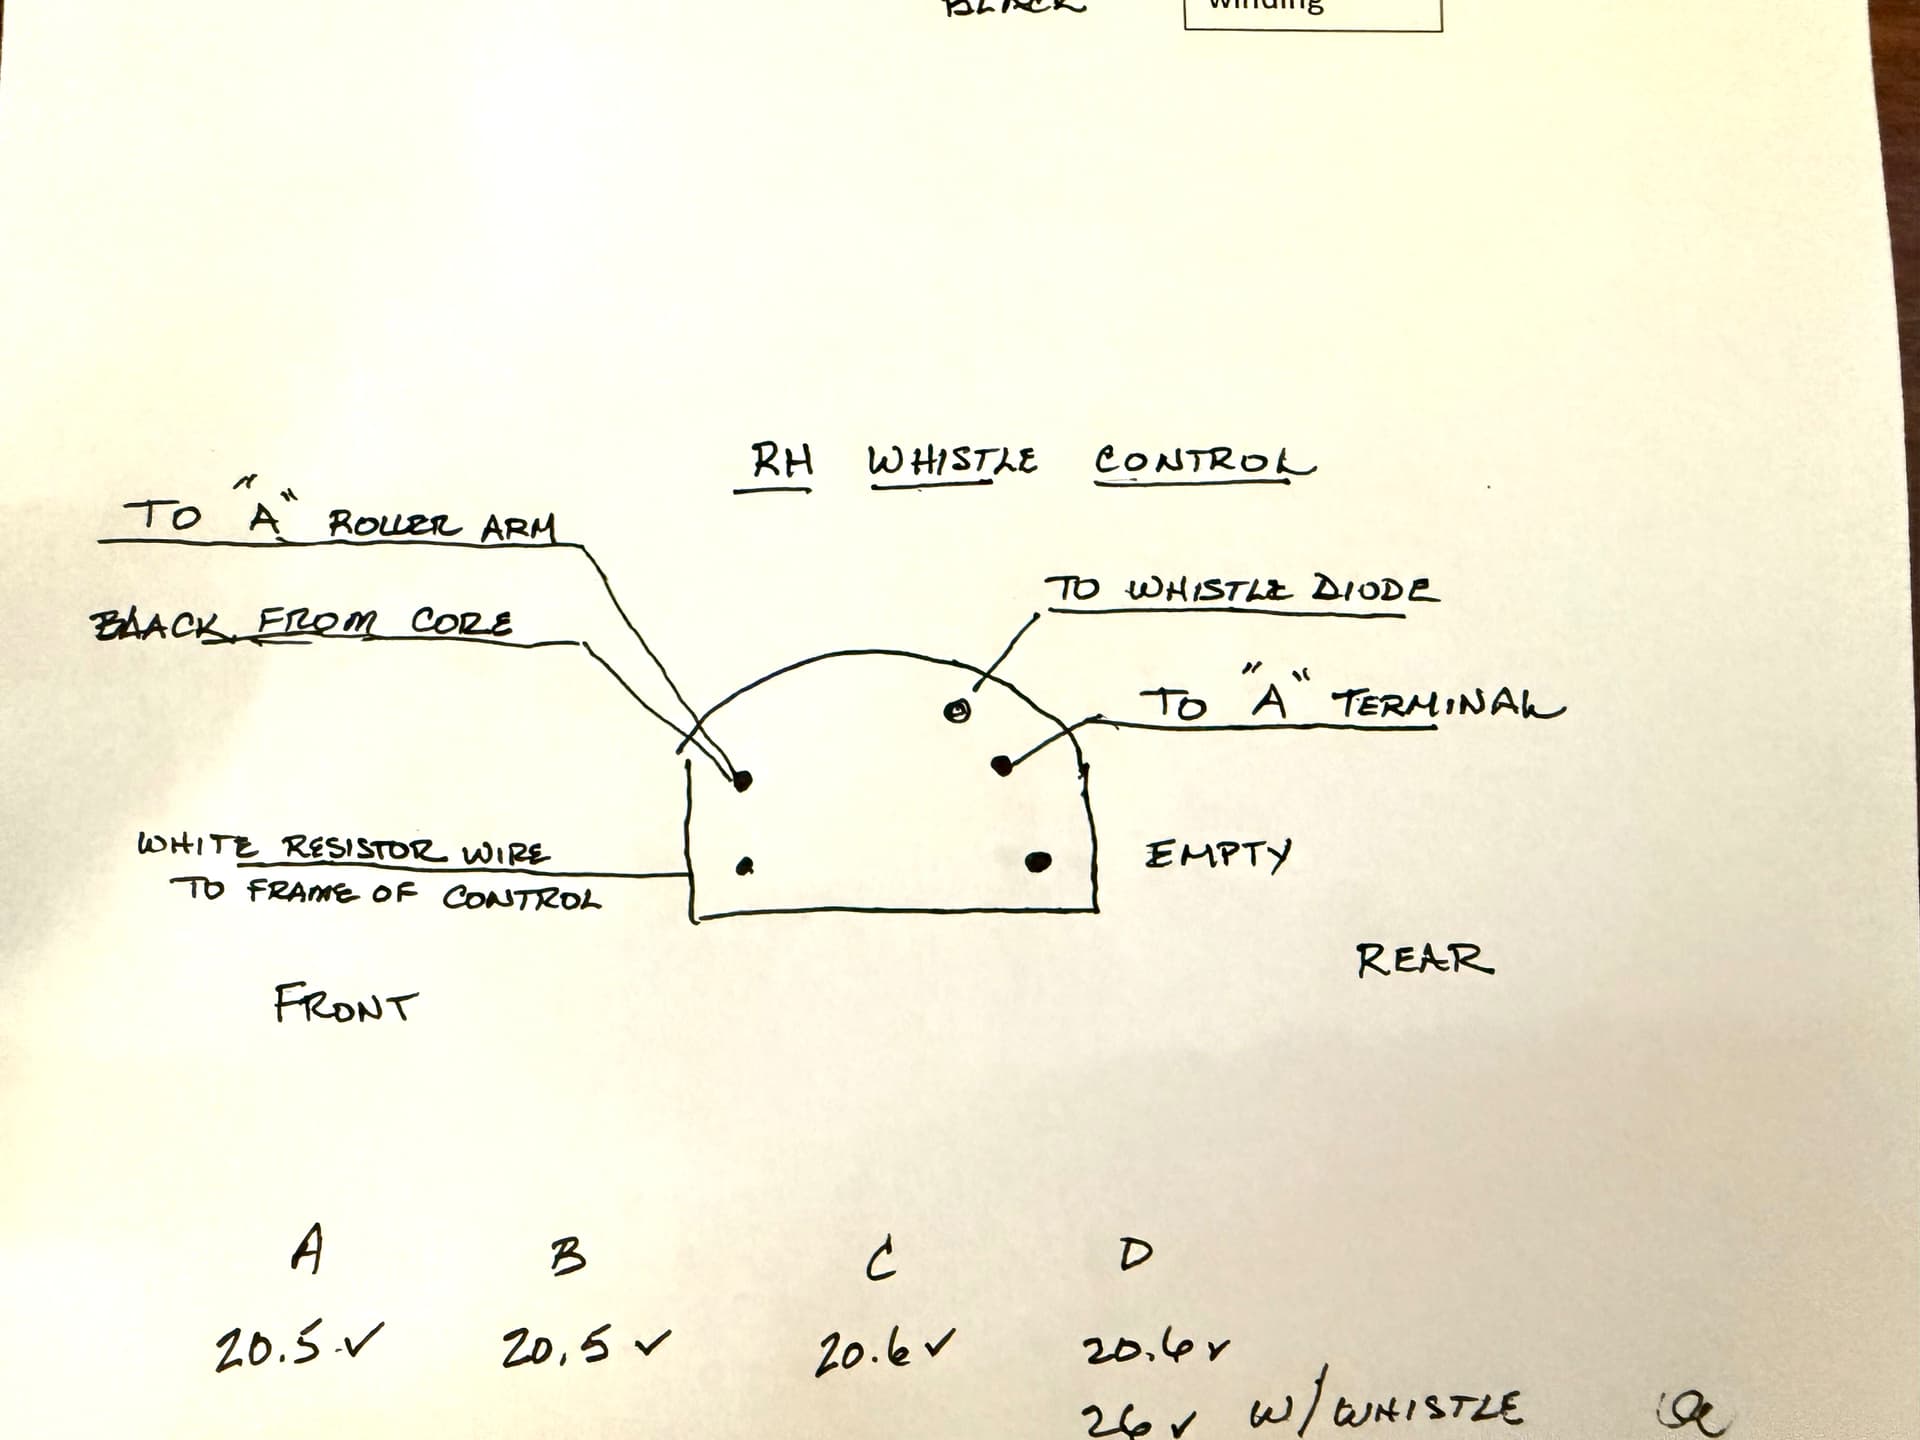 BLACK
winding
RH WHISTLE CONTROL
TO "A" ROLLER ARM
TO WHISTLE DIODE
BLACK FROM CORE
TO "A" TERMINAL
WHITE RESISTOR WIRE
TO FRAME OF CONTROL
EMPTY
REAR
FRONT
A B C D
20.5 v 20.5 v 20.6 v 20.6 v
26 v W/WHISTLE